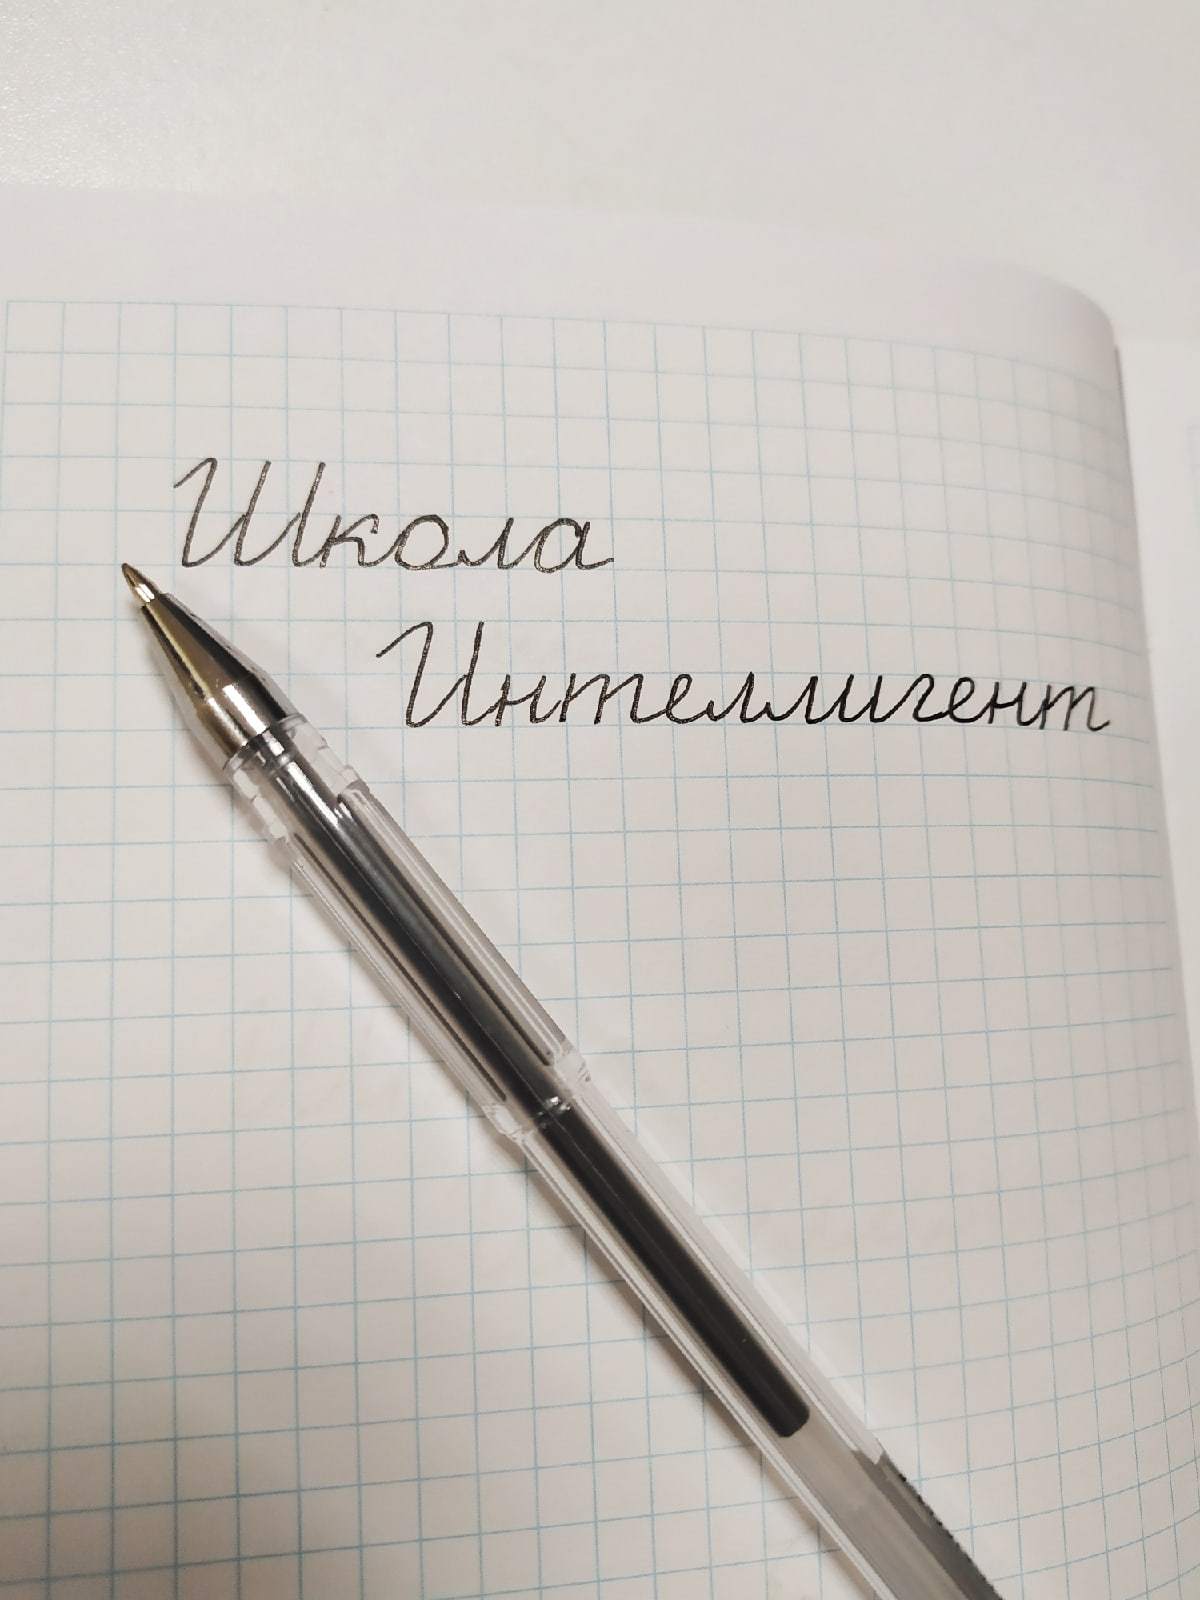 Школа
Интеллигент